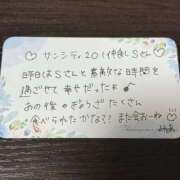 ♡サンシティ201仲良しSさん
昨日はSさんと素敵な時間を
過ごせて幸せだった♡
あの後のぎょうざたくさん
食べられたかな？？また会おーね
♡